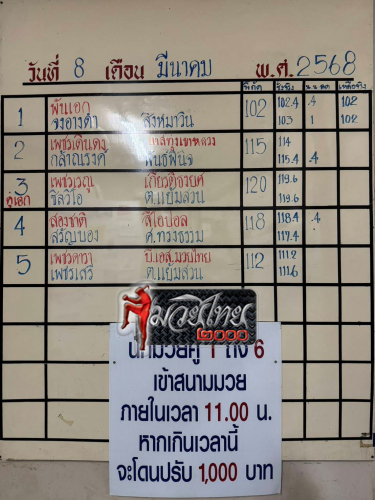 วันที่ 8 เดือน มีนาคม พ.ศ. 2568
พิกัด ชั่งจริง น.น.ลด เหลือจริง
1 พันเอก 102 102.4 .4 102
จงอางดำ สิงหนาวิน 103 1 102
2 เพชรเดินดง 115 114
กล้าณรงค์ พันธ์ฟืนจ 115.4 .4
3 เพชรเวฬุ เกียรติอวยศ 120 119.6
คู่เอก ซิลวิโอ ต.แย้มสวน 119.6
4 สองชาติ ลีโอปอล 118 118.4 .4
สรัญบอง ศ.ทรงธรรม 117.4
5 เพชรดารา บี.เอส.มวยไทย 112 111.2
เพชรเสรี ต.แย้มสวน 111.6
มวยไทย
๒๐๐๐
นักมวยคู่ 1 ถึง 6
เข้าสนามมวย
ภายในเวลา 11.00 น.
หากเกินเวลานี้
จะโดนปรับ 1,000 บาท